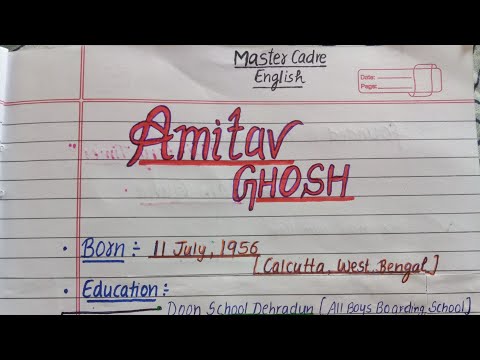 Master Cadre
English
Date:
Page:
Amitav
GHOSH
• Born :- 11 July, 1956
[Calcutta, West Bengal]
• Education :-
Doon School Dehradun [All Boys Boarding School]